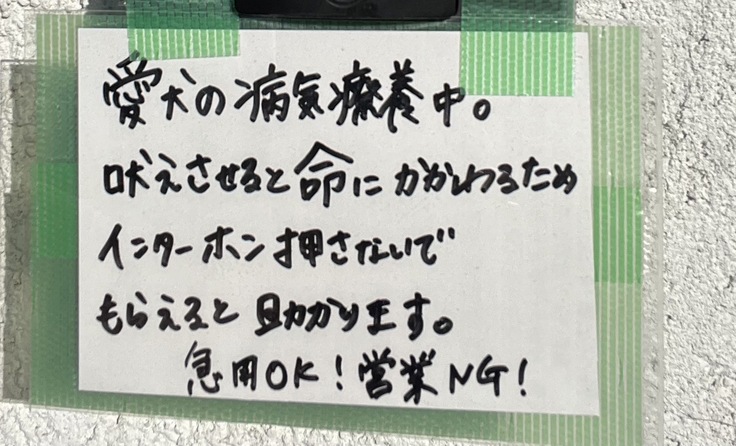 愛犬の病気療養中。
吠えさせると命にかかわるため
インターホン押さないで
もらえると助かります。
急用OK！営業NG！